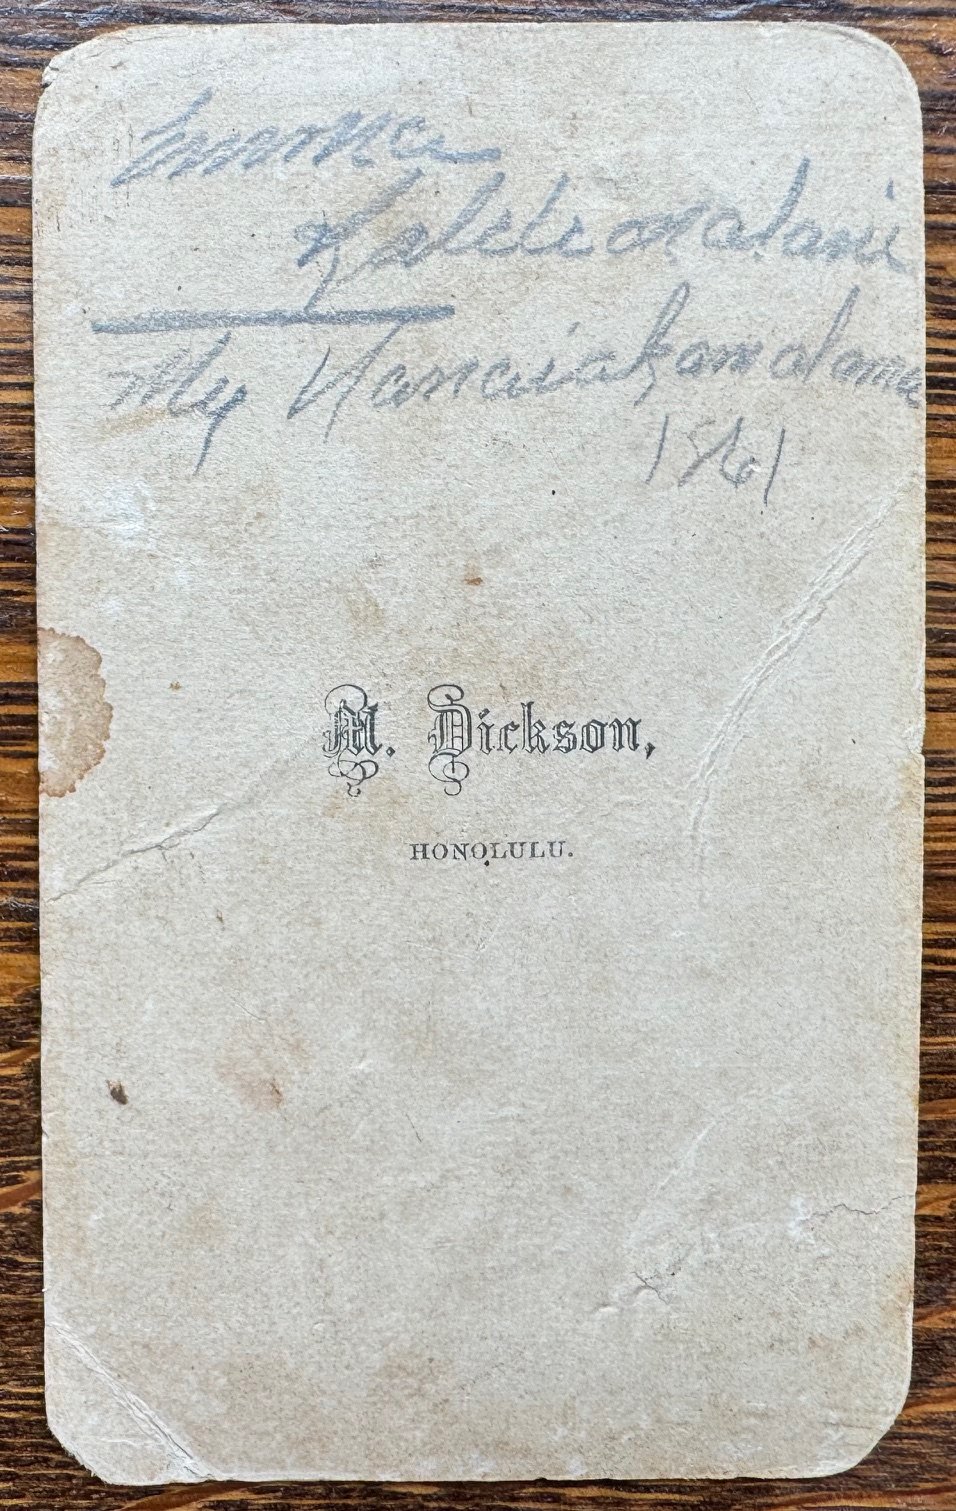 Emma
Kaleleonalani
My Hanaiakamalama
1861
M. Dickson,
HONOLULU.